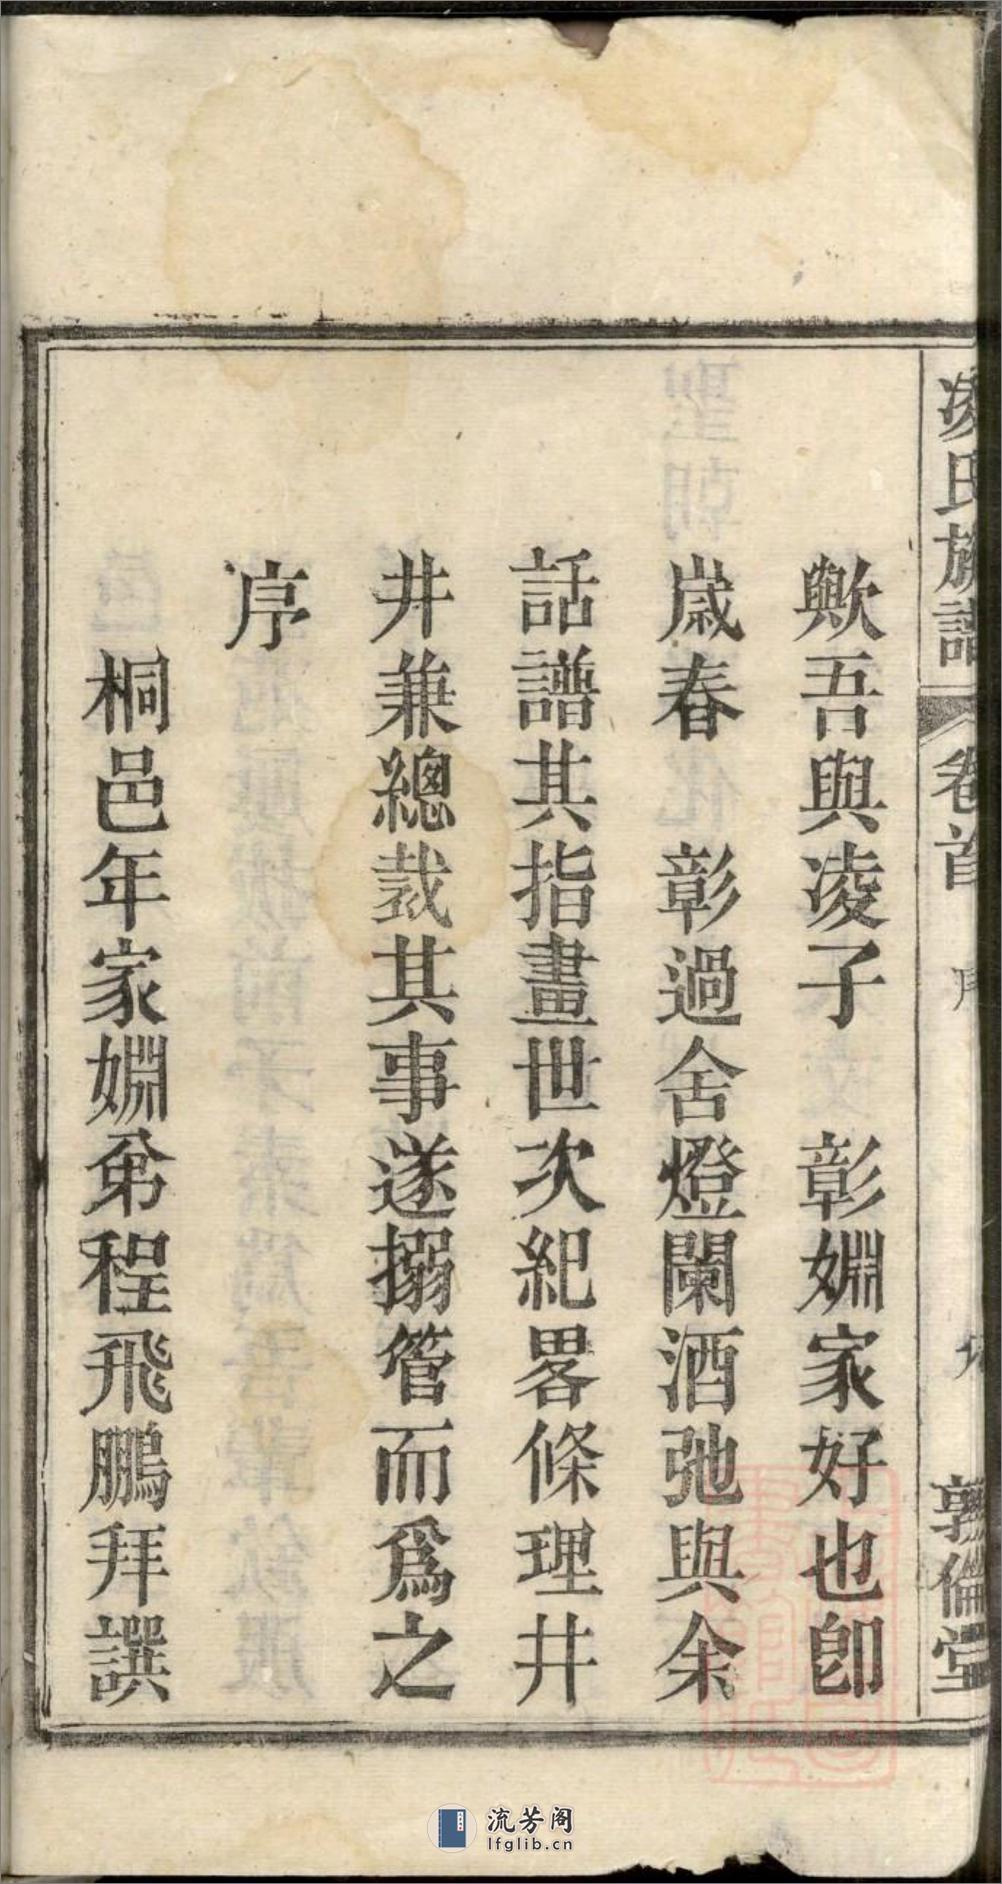 凌氏族譜 卷首 序 九 敦倫堂
歟吾與凌子 彰婣家好也卽
歲春 彰過舍燈闌酒弛與余
話譜其指畫世次紀畧條理井
井兼總裁其事遂搦管而爲之
序
桐邑年家婣弟程飛鵬拜譔
流芳阁
lfglib.cn